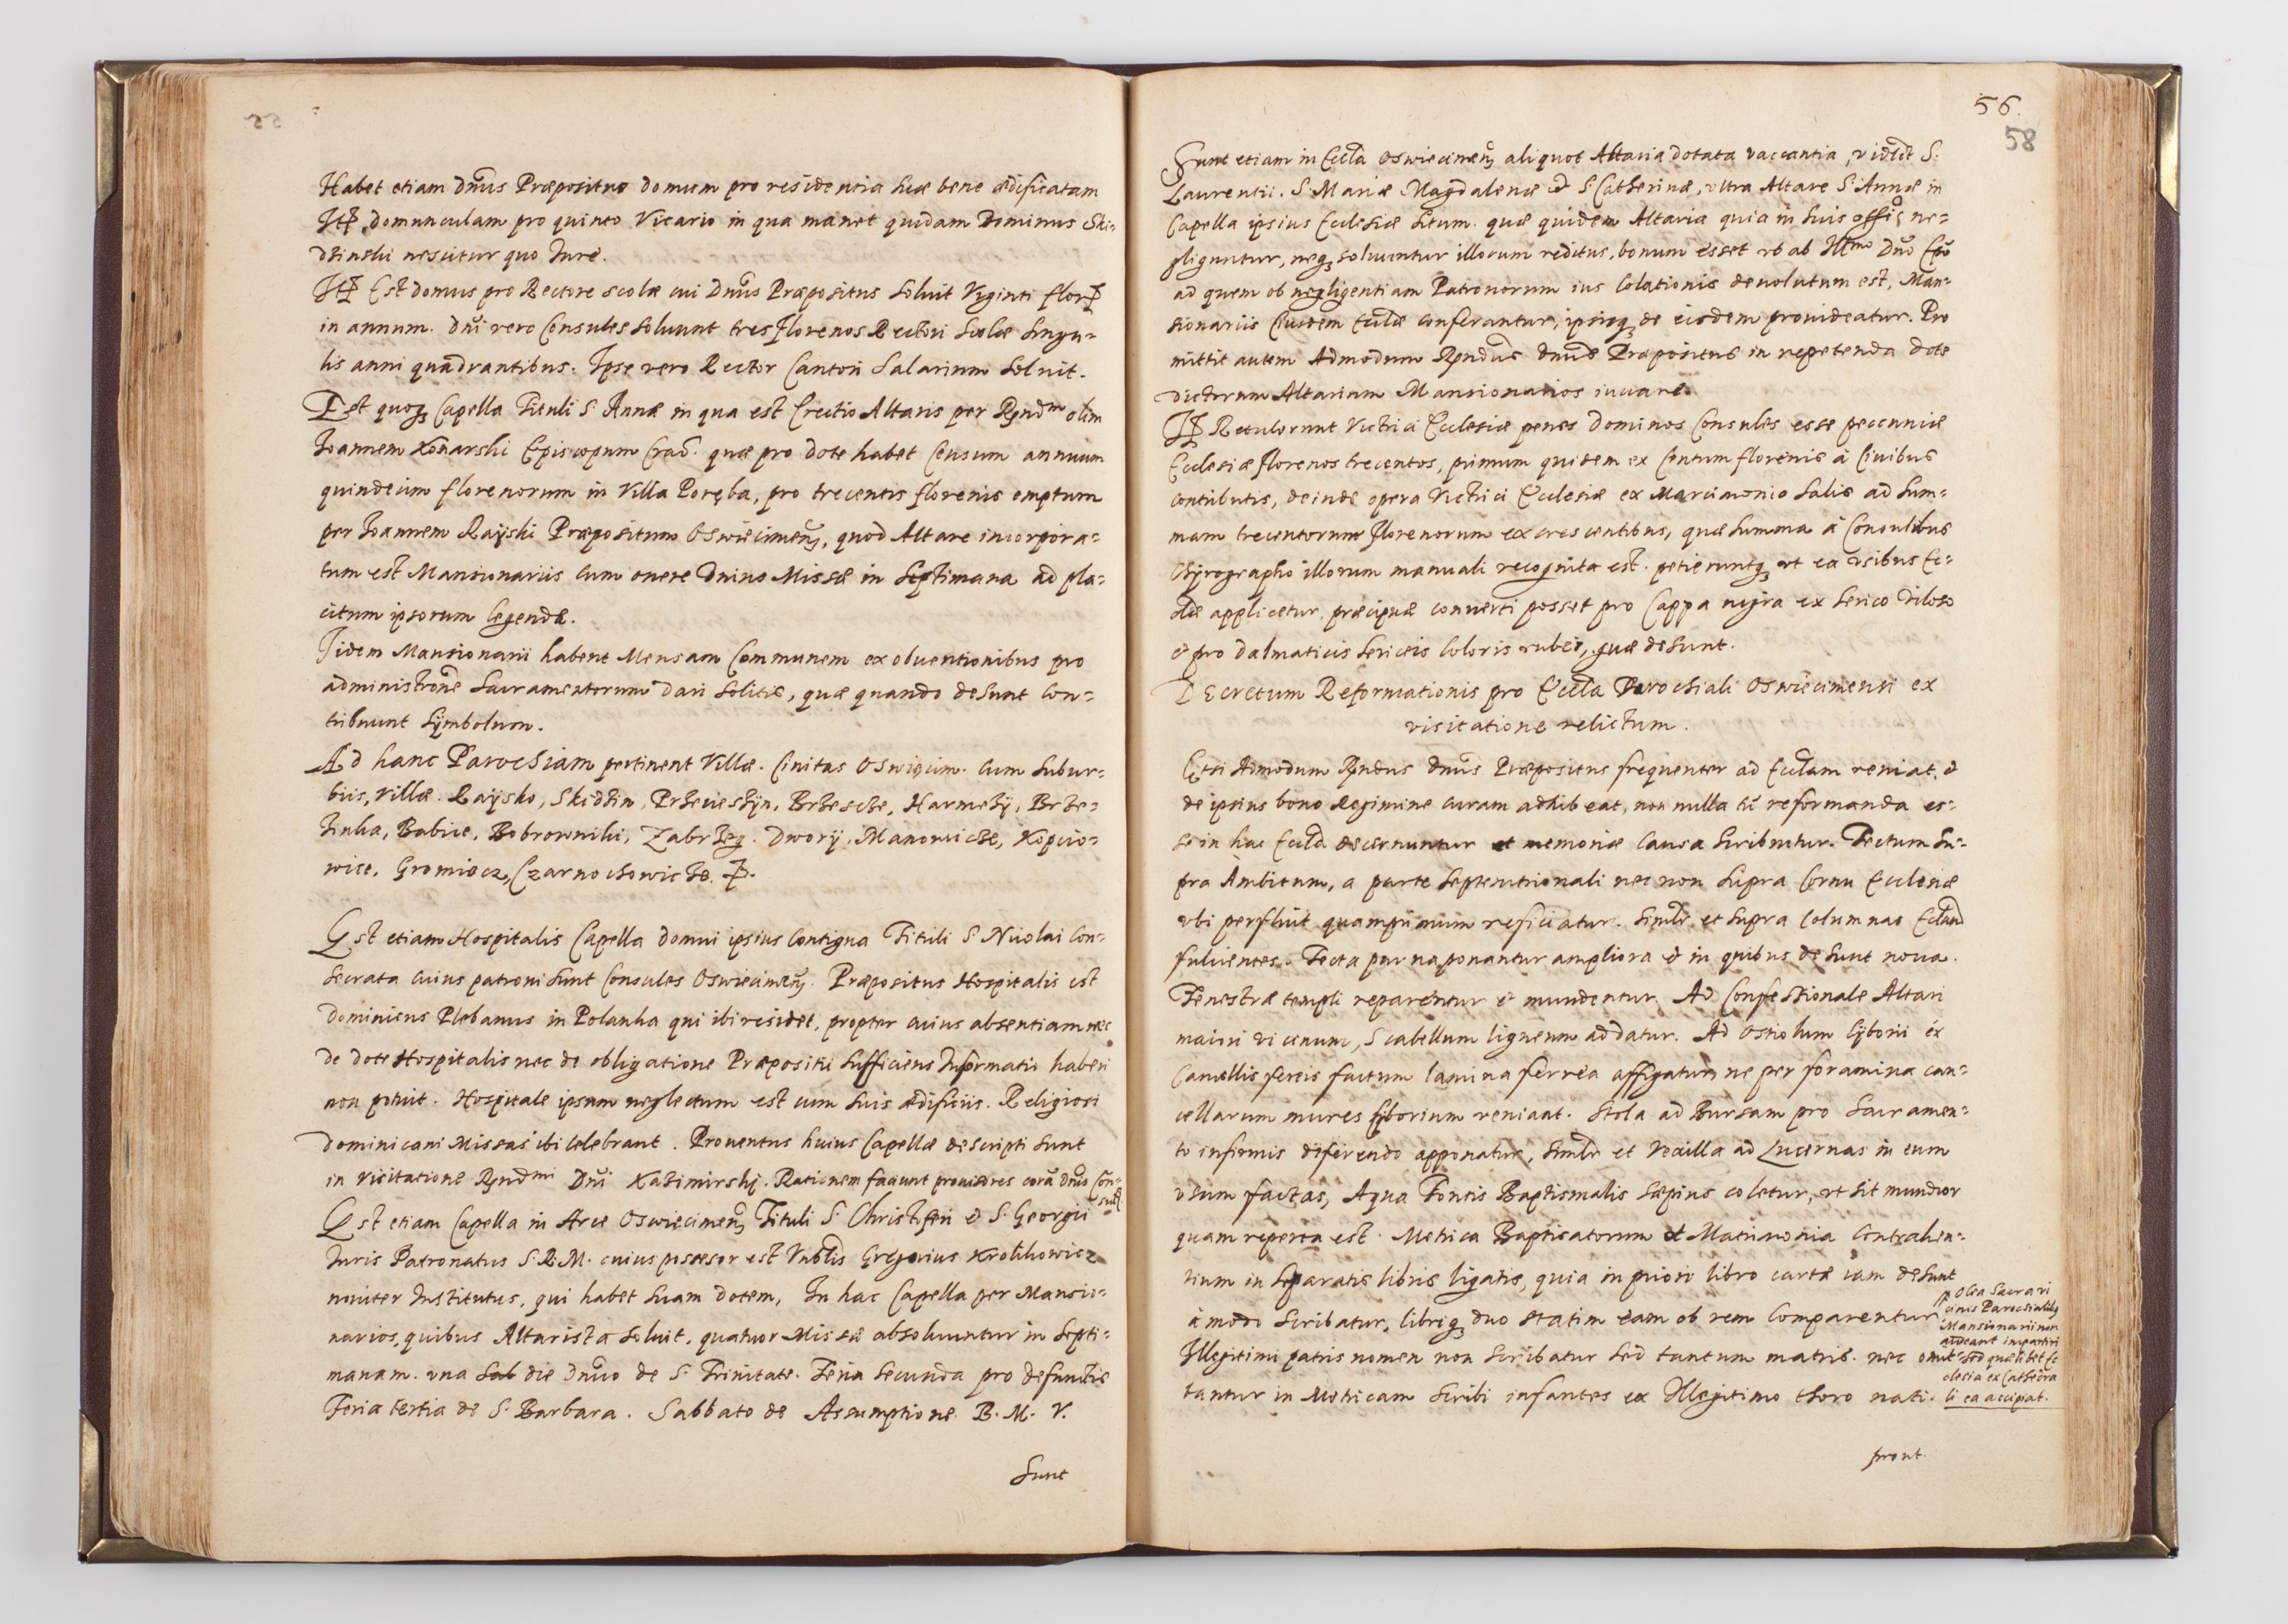 Habet etiam Dnus Præpositus domum pro residentia sua bene ædificatam
Itē domunculam pro quinto Vicario in qua manet quidam Dominus Ski=
dzinski nescitur quo Iure.
Itē Est domus pro Rectore scolæ cui Dnus Præpositus soluit Viginti florē
in annum. Dni vero Consules soluunt tres florenos Rectori Scolæ singu=
lis anni quadrantibus. Ipse vero Rector Cantori Salarium soluit.
Est quoq3 Capella Tituli S. Annæ in qua est Erectio Altaris per Rynd^m olim
Ioannem Konarski Episcopum Crac. quæ pro dote habet Censum annuum
quindecim florenorum in Villa Poręba, pro trecentis florenis emptum
per Ioannem Rayski Præpositum Oswiecimen, quod Altare incorpora=
tum est Mansionariis cum onere vnius Missæ in Septimana ad pla=
citum ipsorum legendæ.
Iidem Mansionarii habent Mensam Communem ex obuentionibus pro
administrone Sacramentorum dari solitis, quæ quando desunt con=
tribuunt symbolum.
Ad hanc Parochiam pertinent Villæ. Ciuitas Oswięcim. cum subur=
biis, villæ. Raysko, Skidzin, Przeciesżyn, Brzescze, Harmęży, Brze=
zinka, Babice, Bobrowniki, Zabrzeg. Dwory, Manowicze, Kopcio=
wice, Gromiecz, Czarnochowicze.
Est etiam Hospitalis Capella domui ipsius Contigua Tituli S. Nicolai Con=
secrata cuius patroni sunt Consules Oswiecimen. Præpositus Hospitalis est
Dominicus Plebanus in Polanka qui ibi residet, propter cuius absentiam nec
de dote Hospitalis nec de obligatione Præpositi sufficiens Informatio haberi
non potuit. Hospitale ipsum neglectum est cum suis ædificiis. Religiosi
dominicani Missas ibi Celebrant. Prouentus huius Capellæ descripti sunt
in visitatione Rynd^mi Dni Kazimirski. Rationem faciunt prouisores corā Dnis Con=
sulib
Est etiam Capella in Arce Oswiecimen Tituli S. Christoferi & S. Georgii
Iuris Patronatus S. R. M. cuius possesor est Nublis Gregorius Krolikowicz
nouiter Institutus, qui habet suam dotem, In hac Capella per Mansio=
narios, quibus Altarista soluit, quatuor Missæ absoluuntur in septi=
manam. vna sab die Dnico de S. Trinitate. Feria secunda pro defunctis
Feria tertia de S. Barbara. Sabbato de Assumptione B. M. V.
Sunt
56.
58
Sunt etiam in Eccla Oswiecimen aliquot Altaria dotata vaccantia, videlt S.
Laurentii. S. Mariæ Magdalenæ & S. Catherinæ, vltra Altare S. Annæ in
Capella ipsius Ecclesiæ situm. quæ quidem Altaria quia in suis offis ne=
gliguntur, neq3 soluuntur illorum reditus, bonum esset vt ab Ill^mo Dno Epo
ad quem ob negligentiam Patronorum ius Colationis deuolutum est, Man=
sionariis Eiusdem Ecclæ conferantur, ipsisq3 de eisdem prouideatur. Pro
mittit autem Admodum Rndus Dnus Præpositus in repetenda dote
dictorum Altarium Mansionarios iuuare.
Itē Retulerunt Victrici Ecclesiæ penes Dominos Consules esse pecuniæ
Ecclesiæ florenos trecentos, primum quidem ex Centum florenis à Ciuibus
contributis, deinde opera Victrici Ecclesiæ ex Marcimonio Salis ad sum=
mam trecentorum florenorum excrescentibus, quæ summa à Consulibus
Chyrographo illorum manuali recognita est. petieruntq3 vt ea vsibus Ec=
clæ applicetur, præcipuæ conuerti posset pro Cappa nigra ex serico viloso
& pro dalmaticis sericeis Coloris rubei, quæ desunt.
DEcretum Reformationis pro Eccla Parochiali Oswiecimensi ex
visitatione relictum.
Etsi Admodum Rndus Dnus Præpositus frequenter ad Ecclam veniat, &
de ipsius bono Regimine curam adhibeat, non nulla tn reformanda es=
se in hac Eccla decernuntur et memoriæ causa scribuntur. Tectum su=
pra Ambitum, a parte septentrionali nec non supra Cornu Ecclesiæ
vbi perfluit quamprimum reficiatur. Similr et supra Columnas Ecclam
fulcientes. Tecta parua ponantur ampliora & in quibus desunt noua.
Fenestræ templi reparentur & mundentur. Ad Confessionale Altari
maiori vicinum, Scabellum ligneum addatur. Ad Ostiolum Cyborii ex
Cancellis ferreis factum lamina ferrea affigatur, ne per foramina can=
cellarum mures Cyborium veniant. Stola ad Bursam pro Sacramen=
to infirmis deferendo apponatur, similr et Vexilla ad Lucernas in eum
vsum factas, Aqua Fontis Baptismalis sæpius coletur, vt sit mundior
quam reperta est. Metrica Baptisatorum et Matrimonia Contrahen=
tium in separatis libris ligatis, quia in priori libro cartæ iam desunt
à modo Scribatur, libriq3 duo statim eam ob rem Comparentur
Illegitimi patris nomen non scribatur sed tantum matris. nec omit=
tantur in Metricam scribi infantes ex Illegitimo thoro nati.
Olea Sacra vi
cinis Parochialib9
Mansionarii non
audeant impartiri
sed quælibet Ec
clesia ex Cathedra
li ea accipiat.
prout.